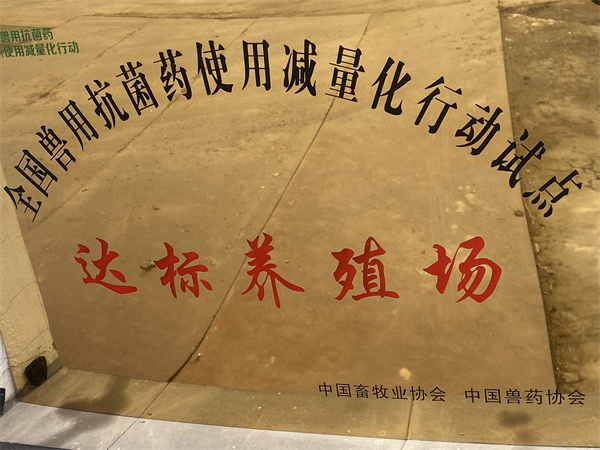 兽用抗菌药
使用减量化行动
全国兽用抗菌药使用减量化行动试点
达标养殖场
中国畜牧业协会 中国兽药协会